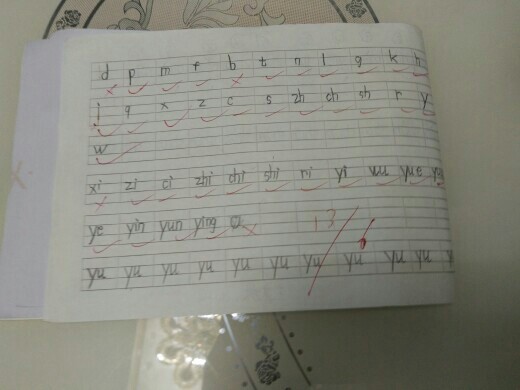 d p m f b t n l g k h
j q x z c s zh ch sh r y
w
xi zi ci zhi chi shi ri yi wu yue
ye yin yun ying
13
yu yu yu yu yu yu yu yu yu yu